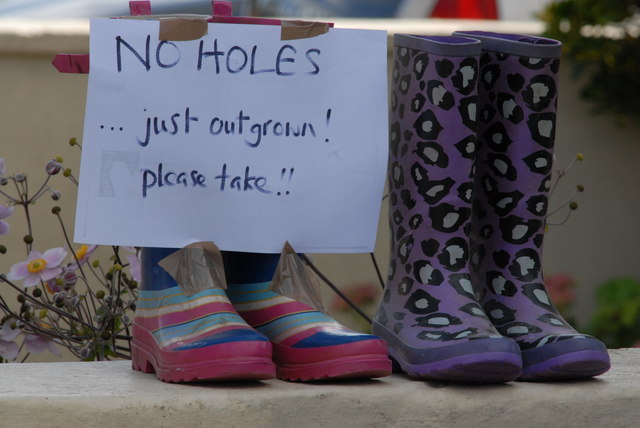 NO HOLES
... just outgrown!
please take!!